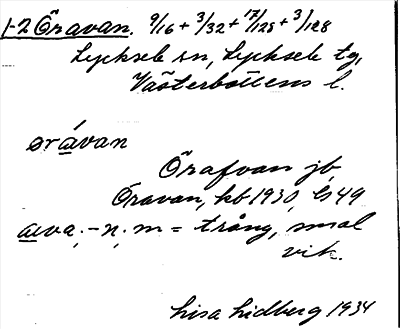 1-2 Öravan. 9/16 + 3/32 + 17/128 + 3/128
Lycksele sn, Lycksele tg,
Västerbottens l.
ørávan
Örafvan jb
Öravan, kb 1930, GS 49
ava, -n, m = trång, smal
vik.
Lisa Lidberg 1934